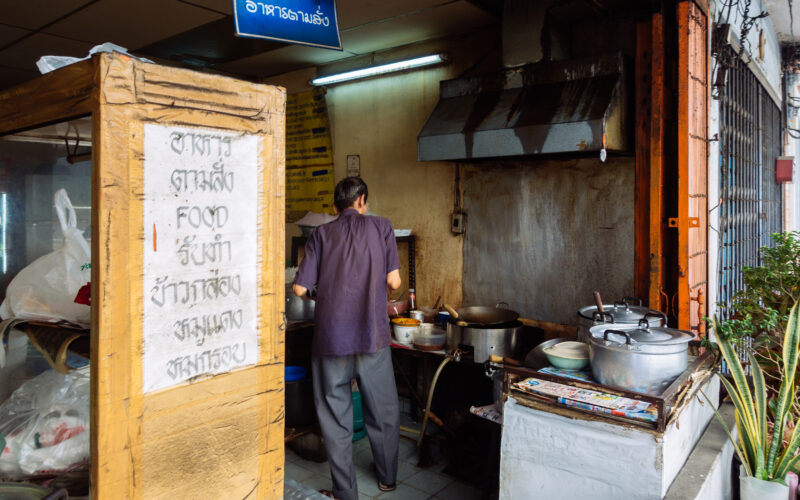 อาหารตามสั่ง
อาหาร
ตามสั่ง
FOOD
รับทำ
ข้าวกล่อง
หมูแดง
หมูกรอบ